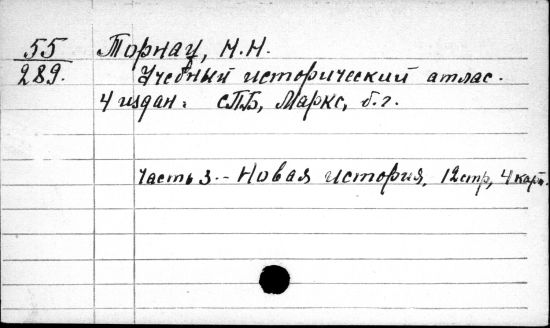 55
289.
Торнау, Н.Н.
Учебный исторический атлас.
4 издан. СПБ, Маркс, б.г.
Часть 3.- Новая история, 12 стр, 4 карт.